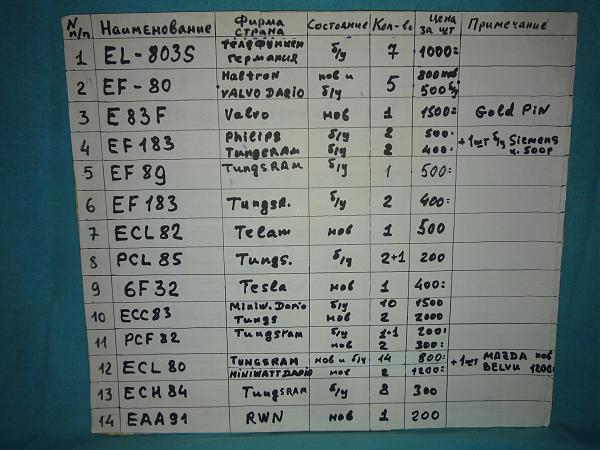 N п/п Наименование Фирма страна Состояние Кол-во Цена за шт Примечание
1 EL-803S Телефункен Германия б/у 7 1000=
2 EF-80 Haltron нов и 5 800 нов
VALVO DARIO б/у 500 б/у
3 E83F Valvo нов 1 1500= Gold Pin
4 EF183 Philips б/у 2 500= +1шт б/у Siemens
TUNGSRAM б/у 2 400= ц. 500р
5 EF89 TUNGSRAM б/у 1 500=
6 EF183 TUNGSR. б/у 2 400=
7 ECL82 Telam нов 1 500
8 PCL85 Tungs. б/у 2+1 200
9 6F32 Tesla нов 1 400=
10 ECC83 Miniw. Dario б/у 10 1500
Tungs нов 2 2000
11 PCF82 Tungsram б/у 1+1 200=
нов 2 300=
12 ECL80 TUNGSRAM нов и б/у 14 800= +1шт MAZDA нов
MINIWATT DARIO нов 2 1200= BELVU 1200=
13 ECH84 TungsRAM б/у 8 300
14 EAA91 RWN нов 1 200